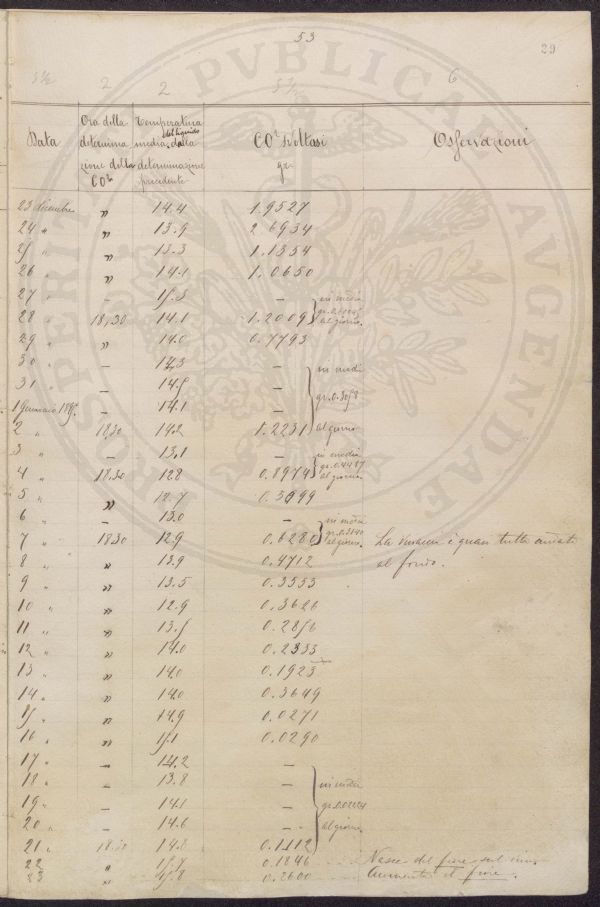 53
29
3½ 2 2 6
Data
Ora della determinazione della CO²
Temperatura media del liquido dalla determinazione precedente
CO² svoltasi gr.
Osservazioni
23 dicembre " 14.4 1.9527
24 " " 13.9 2.6934
25 " " 13.3 1.1354
26 " " 14.1 1.0650
27 " — 15.5 — in media
28 " 18,30 14.1 1.2009 al giorno.
29 " " 14.0 0.7793
30 " — 14.3 — in media
31 " — 14.5 — gr. 0.3058
1 Gennaio — 14.1 —
2 " 18,30 14.2 1.2231 al giorno
3 " — 13.1 — in media
4 " 18.30 12.8 0.8974 gr. 0.4487 al giorno
5 " " 12.7 0.3999
6 " — 13.0 — in media
7 " 18.30 12.9 0.6280 gr. 0.3140 al giorno. La vinaccia è quasi tutta andata
8 " " 13.9 0.4712 al fondo.
9 " " 13.5 0.3553
10 " " 12.9 0.3626
11 " " 13.5 0.2856
12 " " 14.0 0.2333
13 " " 14.0 0.1923
14 " " 14.0 0.3649
15 " " 14.9 0.0271
16 " " 15.1 0.0290
17 " — 14.2 —
18 " — 13.8 — in media
19 " — 14.1 —
20 " — 14.6 — al giorno
21 " 18.30 14.8 0.1112
22 " 15.7 0.1846 Nasce del fiore sul vino.
23 " 15.8 0.2600 Aumenta il fiore.
PUBLICAE
PROSPERITATI
AUGENDAE